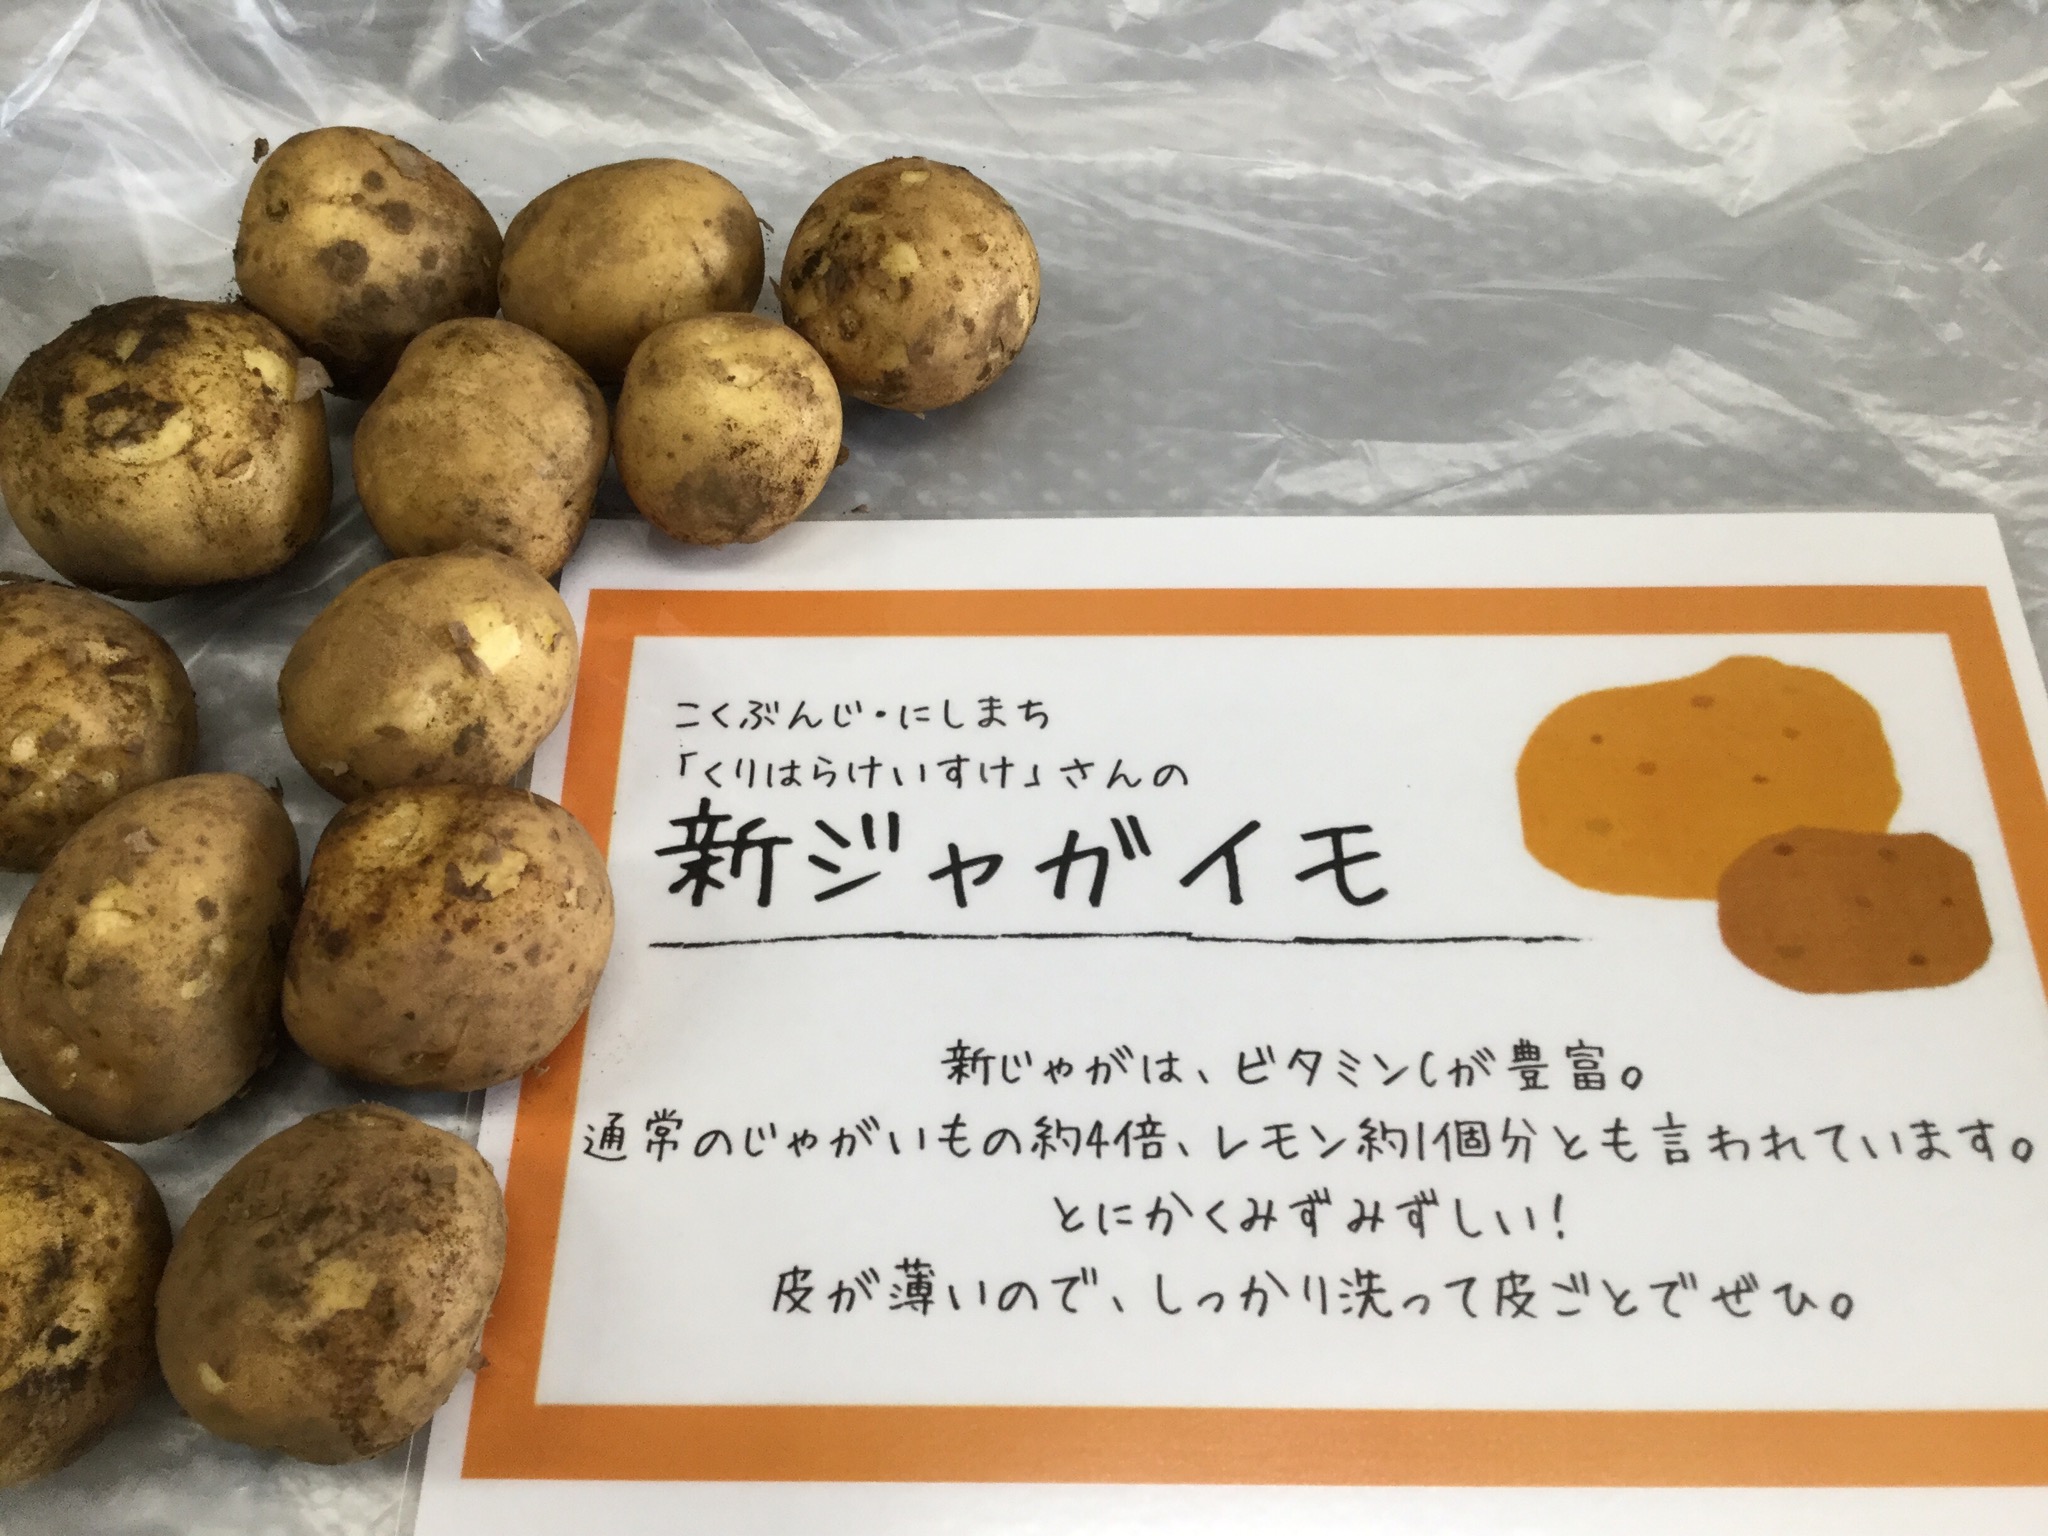 こくぶんじ・にしまち
「くりはらけいすけ」さんの
新ジャガイモ
新じゃがは、ビタミンCが豊富。
通常のじゃがいもの約4倍、レモン約1個分とも言われています。
とにかくみずみずしい!
皮が薄いので、しっかり洗って皮ごとでぜひ。